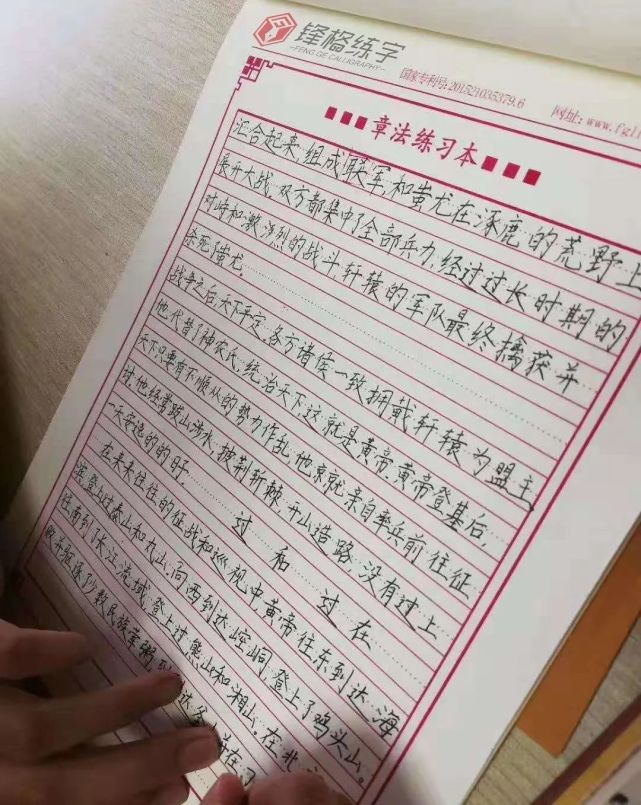 锋格练字
FENG GE CALLIGRAPHY
国家专利号:201521035379.6
网址:www.fgli
章法练习本
汇合起来,组成联军,和蚩尤在涿鹿的荒野上
展开大战,双方都集中了全部兵力,经过过长时期的
对峙和激烈的战斗,轩辕的军队最终擒获并
杀死了蚩尤。
战争之后,天下平定,各方诸侯一致拥戴轩辕为盟主
他代替了神农氏,统治天下,这就是黄帝。黄帝登基后,
天下只要有不顺从的势力作乱,他就亲自率兵前往征
讨,他经常跋山涉水,披荆斩棘,开山造路,没有过上
一天安逸的的日子。过和过在
在来来往往的征战和巡视中,黄帝往东到达海
滨,登上过泰山和丸山。向西到达崆峒,登上了鸡头山。
往南到了长江流域,登上过熊山和湘山。在北
驱逐了少数民族荤粥